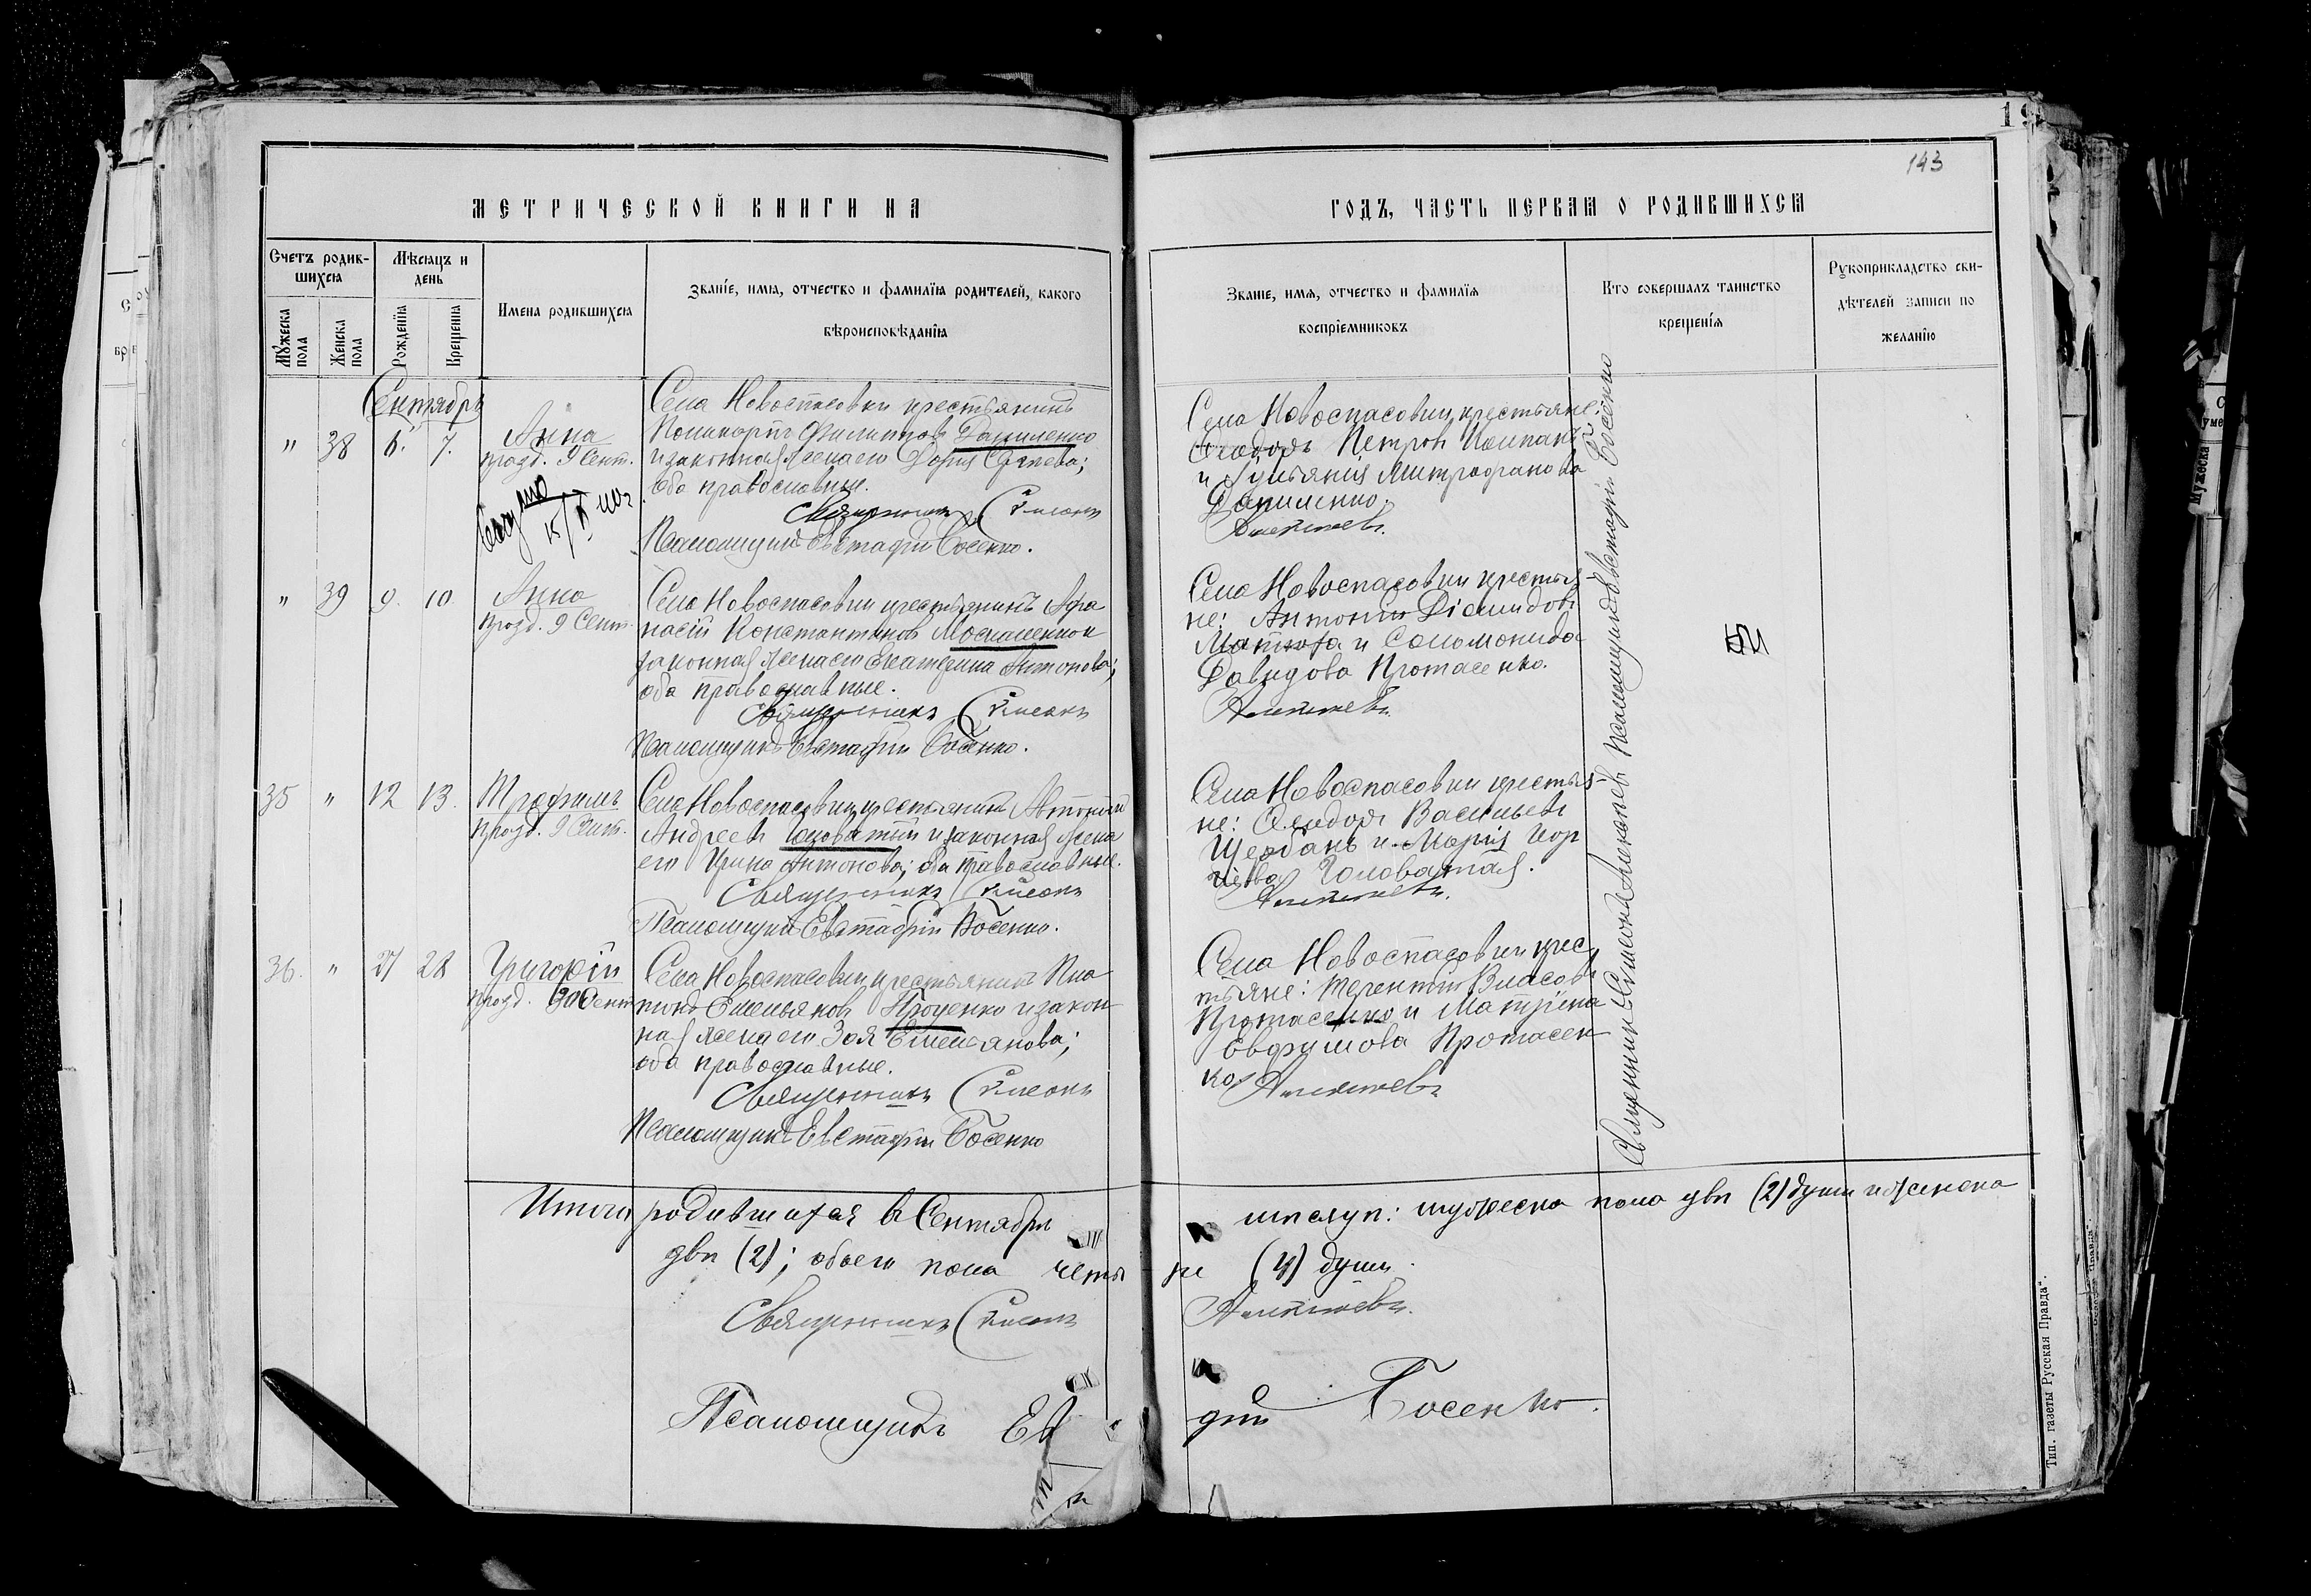 МЕТРИЧЕСКОЙ КНИГИ НА
Счетъ родив-
шихся
Мѣсяцъ и
день
Мужеска
пола
Женска
пола
Рожденія
Крещенія
Имена родившихся
Званіе, имя, отчество и фамилія родителей, какого
вѣроисповѣданія
Сентябрь
" 38 6. 7. Анна
празд. 9 Сент.
Села Новоспасовки крестьянинъ
Поликарпъ Филипповъ Даниленко
и законная жена его Дарія
оба православные.
Священникъ Симеонъ
Псаломщикъ Евстафій Босенко.
" 39 9. 10. Анна
празд. 9 Сент.
Села Новоспасовки крестьянинъ Афа
насій Константиновъ
законная жена его Екатерина Антонова;
оба православные.
Священникъ Симеонъ
Псаломщикъ Евстафій Босенко.
35 " 12 13. Трофимъ
празд. 9 Сент.
Села Новоспасовки крестьянинъ
Андреевъ и законная жена
его Ирина Антонова; оба православные.
Священникъ Симеонъ
Псаломщикъ Евстафій Босенко.
36. " 27 28 Григорій
празд. 30 Сент
Села Новоспасовки крестьянинъ Пла
тонъ Емельяновъ Проценко и закон
ная жена его Зоя Емельянова;
оба православные.
Священникъ Симеонъ
Псаломщикъ Евстафій Босенко
Итого родившихся въ Сентябрѣ
двѣ (2); обоего пола четы
Священникъ Симеонъ
Псаломщикъ Ев
143
ГОДЪ, ЧАСТЬ ПЕРВАЯ О РОДИВШИХСЯ
Званіе, имя, отчество и фамилія
воспріемниковъ
Кто совершалъ таинство
крещенія
Рукоприкладство сви-
дѣтелей записи по
желанію
Села Новоспасовки крестьяне:
Ѳеодоръ Петровъ
и Митрофанова
Даниленко.
Алексѣевъ.
Села Новоспасовки крестья-
не: Антоній Діомидовъ
и Соломонида
Давидова Протасенко.
Алексѣевъ.
Села Новоспасовки крестья-
не: Ѳеодоръ Васильевъ
Щербань и Марія Геор
гіева Головатая.
Алексѣевъ.
Села Новоспасовки крес
тьяне: Терентій Власовъ
Протасенко и Матрена
Евфимова Протасен
ко
Алексѣевъ
Священникъ Симеонъ Алексѣевъ Псаломщикъ Евстафій Босенко
мѣсяцѣ: мужеска пола двѣ (2) души и женска
ре (4) души.
Алексѣевъ.
фій Босенко.
Тип. газеты Русская Правда".